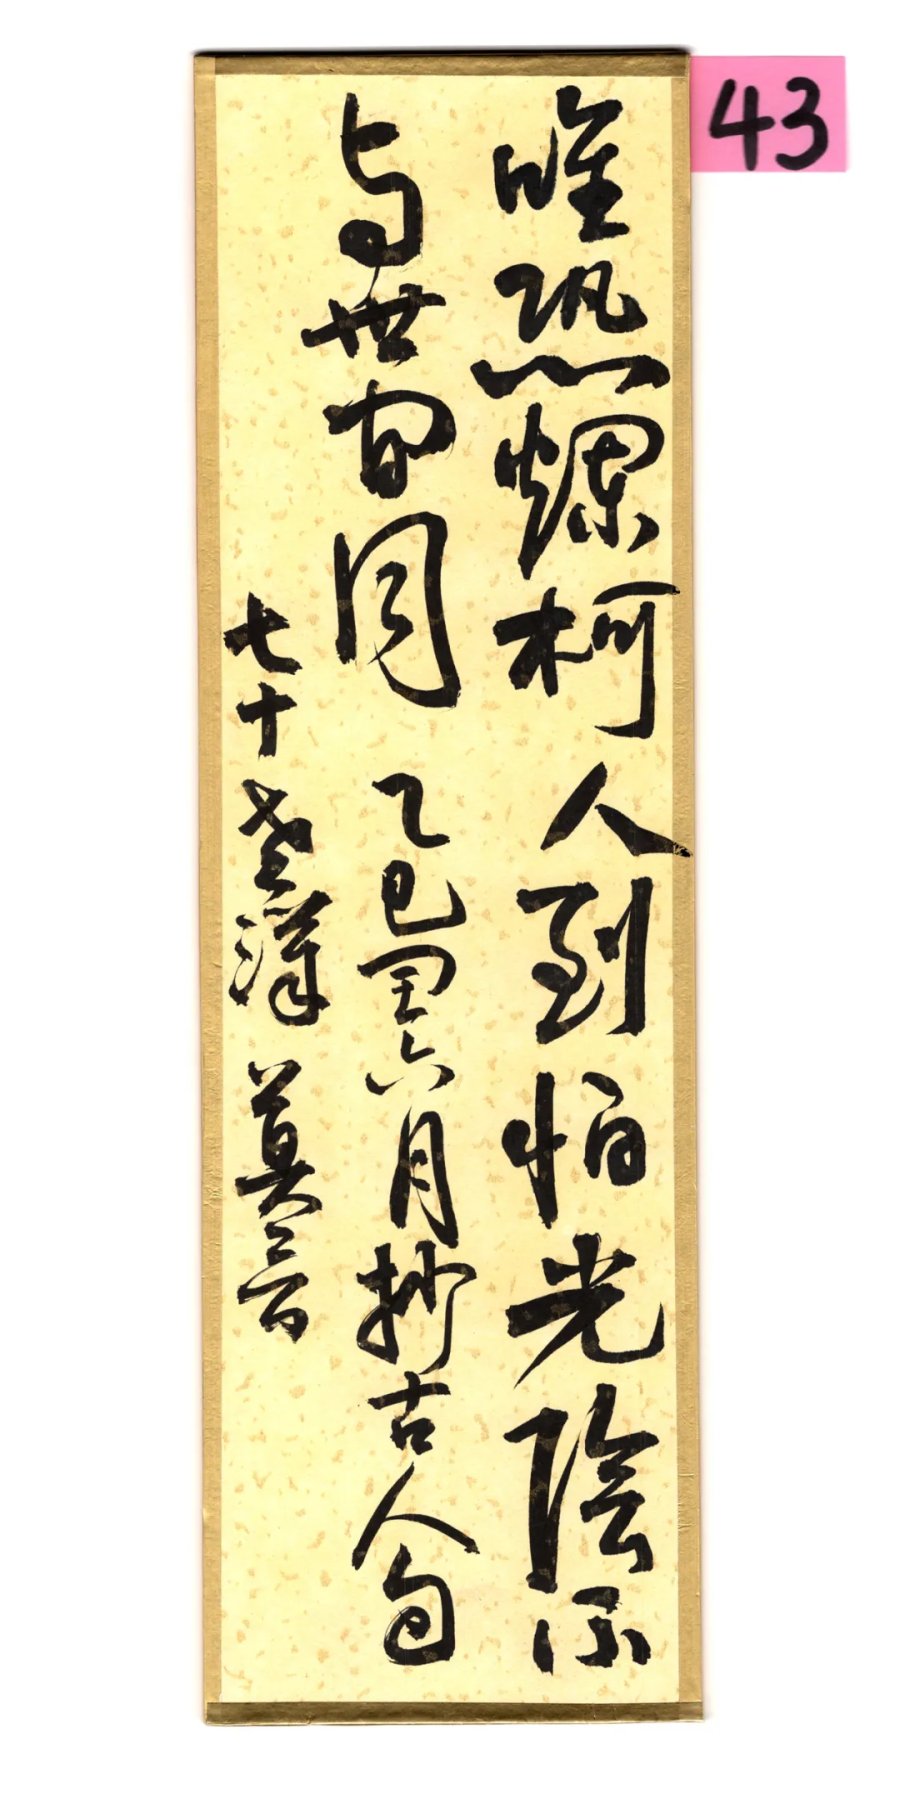 43
唯恐爛柯人到怕光陰不
与世間同 乙巳閏六月抄古人句
七十老漢 莫言